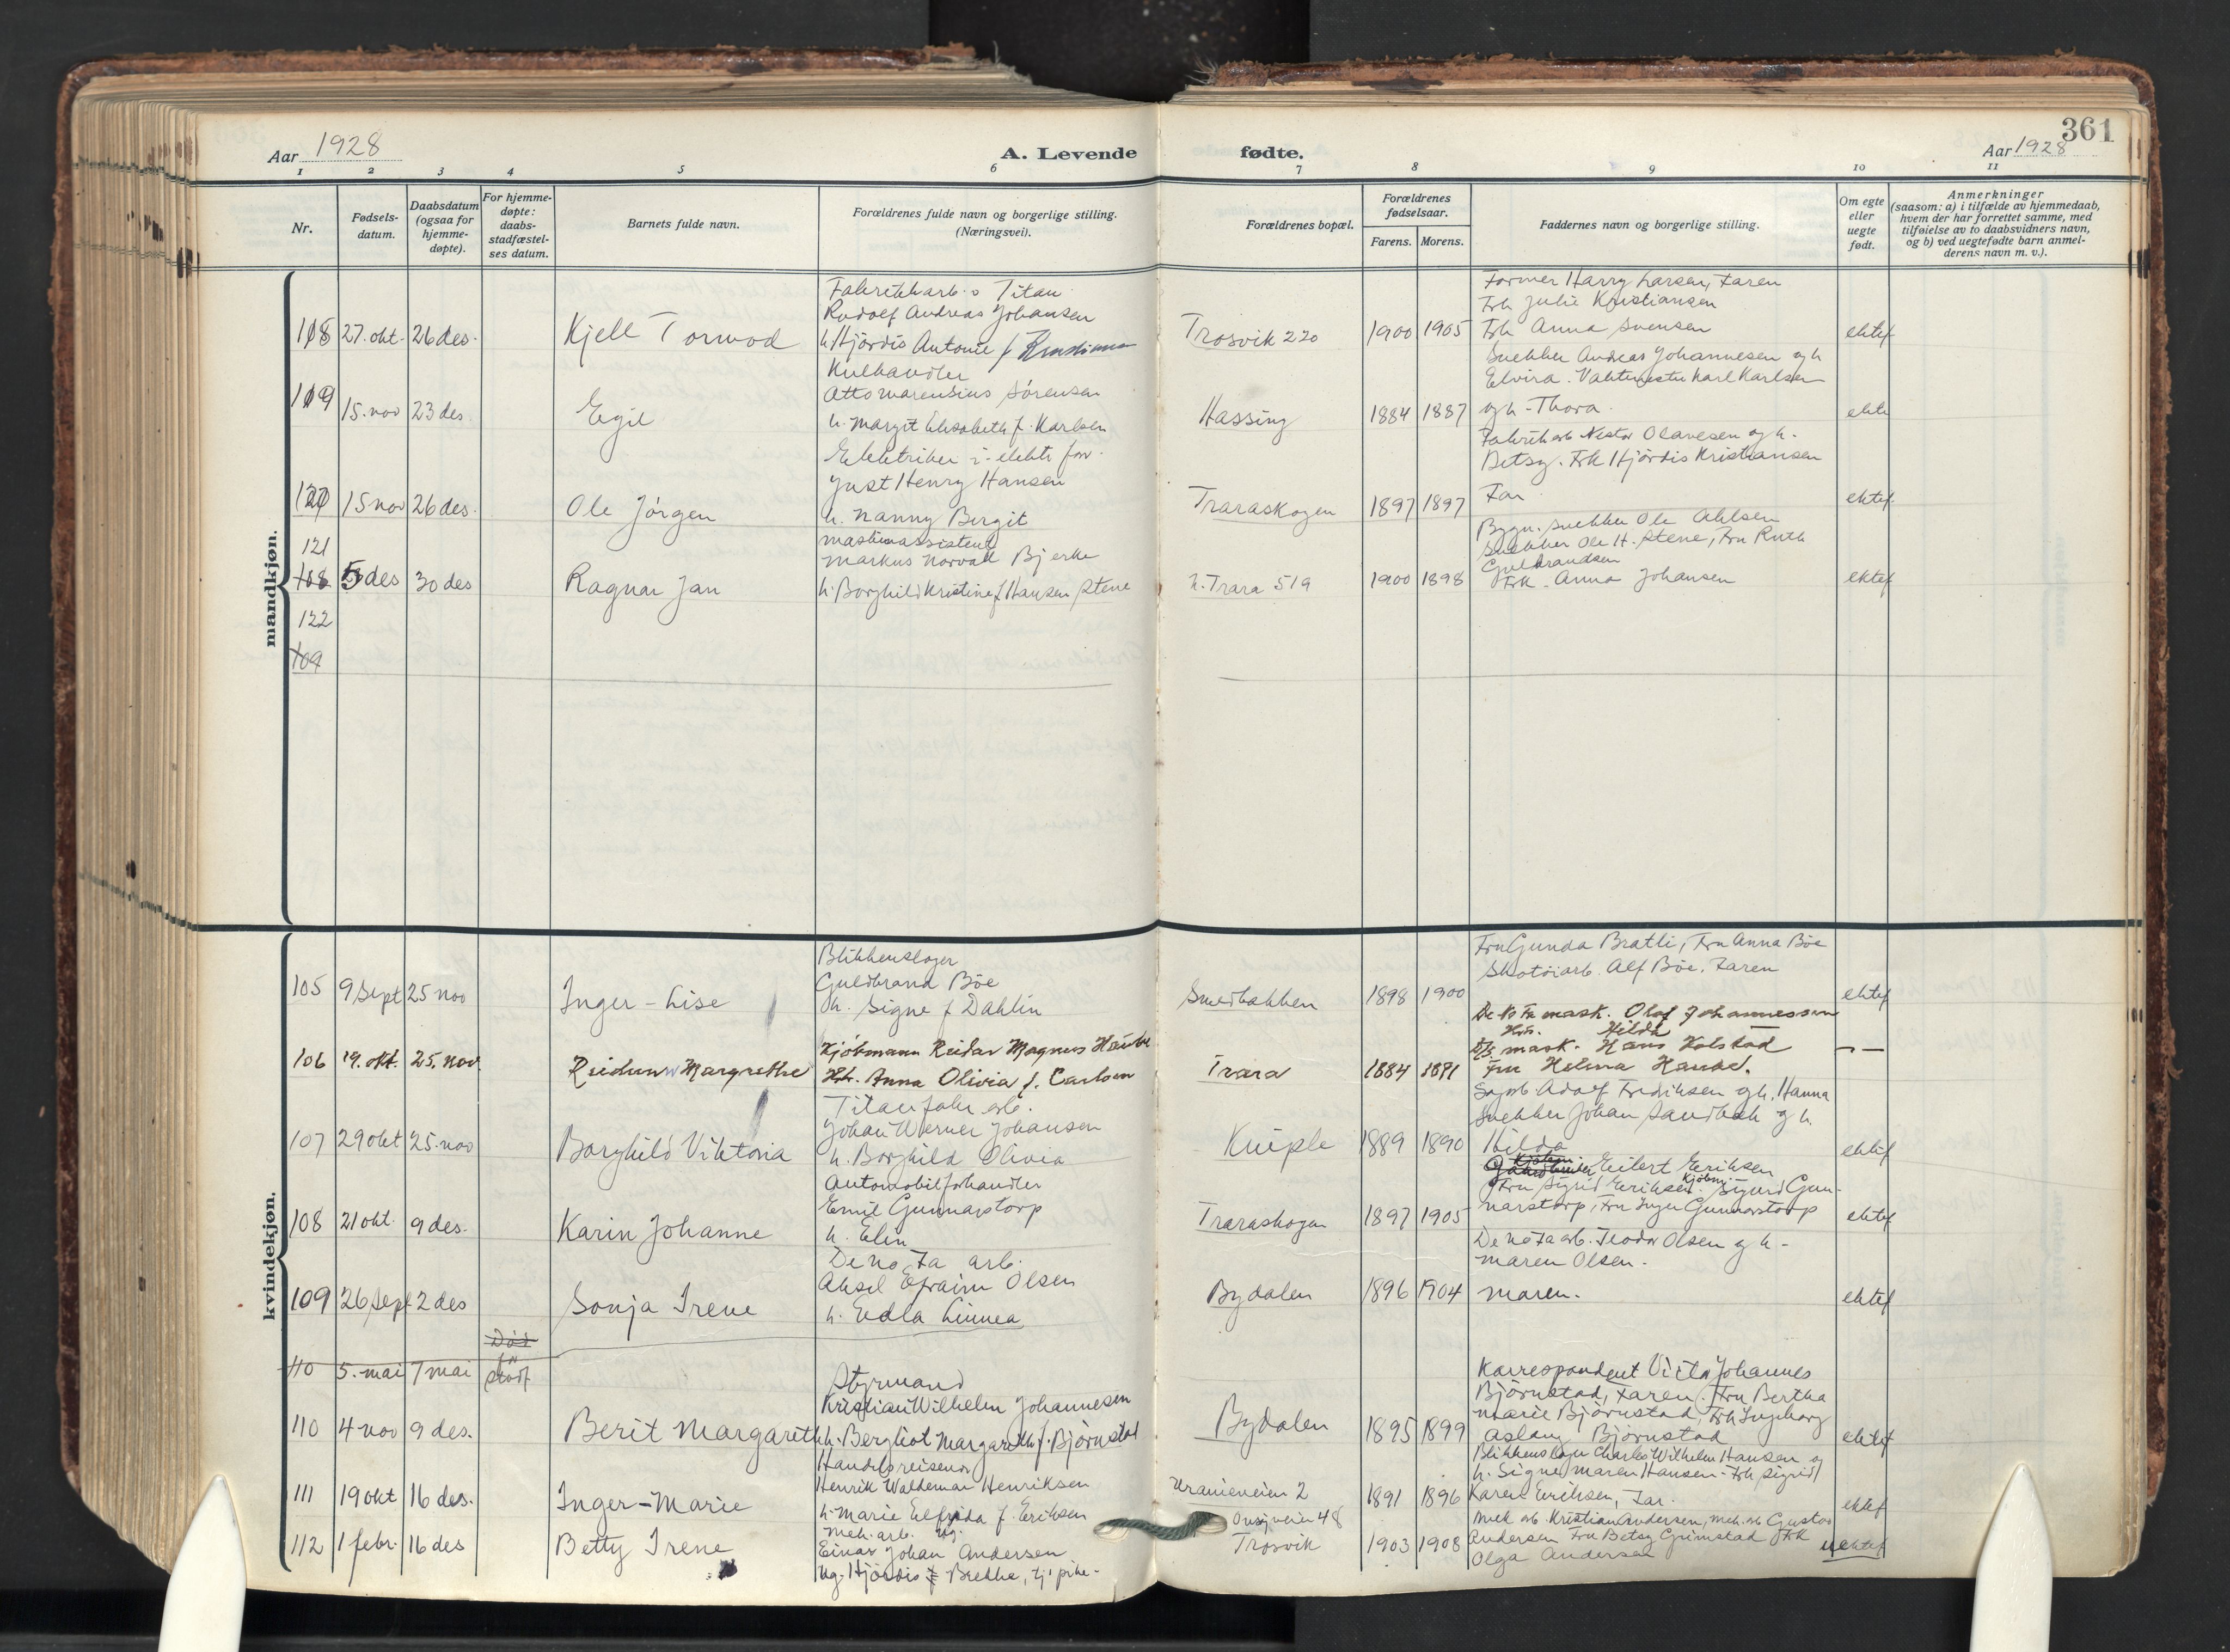 361
Aar 1928
A. Levende fødte.
Aar 1928
1 2 3 4 5 6 7 8 9 10 11
Nr.
Fødsels-
datum.
Daabsdatum
(ogsaa for
hjemme-
døpte).
For hjemme-
døpte:
daabs-
stadfæstel-
ses datum.
Barnets fulde navn.
Forældrenes fulde navn og borgerlige stilling.
(Næringsvei).
Forældrenes bopæl.
Forældrenes
fødselsaar.
Farens. Morens.
Faddernes navn og borgerlige stilling.
Om egte
eller
uegte
født.
Anmerkninger
(saasom: a) i tilfælde av hjemmedaab,
hvem der har forrettet samme, med
tilføielse av to daabsvidners navn,
og b) ved uegtefødte barn anmel-
derens navn m. v.).
mandkjøn.
118 27. okt. 26 des. Kjell Torwod
Fabrikkarb. Titan
Rudolf Andreas Johansen
h. Hjördis Antonie f
Trosvik 220 1900 1905
Former Harry Larsen, Faren
Frk Julie Kristiansen
Frk Anna Svensen
ektef
119 15. nov 23 des Egil
Otto Marensius Sørensen
h. Margit Elisabeth f. Karlsen
Hassing 1884 1887
Snekker Andreas Johannesen og h
Elvira. Vaktmester Karl Karlsen
og h. Thora.
ekte
120 15 nov 26 des. Ole Jörgen
Elektriker i elektr. forr.
Just Henry Hansen
h. Nanny Bergit
Traraskogen 1897 1897
Fabrikarb Nestor Olavesen og h.
Betsy. Frk Hjördis Kristiansen
Far
ektef
121
108 5 des 30 des Ragnar Jan
Maskinassistent
Markus Norvald Bjerke
h. Borghild Kristine f Hansen Stene
n. Trara 519 1900 1898
Bygn. snekker Ole Ahlsen
Snekker Ole H. Stene, Fru Ruth
Gulbrandsen
Frk. Anna Johansen
ektef
122
109
kvindekjøn.
105 9 Sept 25 nov Inger-Lise
Blikkenslager
Guldbrand Böe
h. Signe f Dahlin
Smedbakken 1898 1900
Fru Gunda Bratli, Fru Anna Böe
Skotöiarb. Alf Böe. Faren
ektef
106 19. okt. 25. nov. Reidunn Margrethe
Kjöbmann Reidar Magnus
Htr. Anna Olivia f. Carlsen
Trara 1884 1891
De No Fa mask. Olaf Johannessen
Htr. Hilda
D/S. mask. Hans Holstad
Fru Helma
107 29 okt 25. nov Borghild Viktoria
Titan fabr arb.
Johan Werner Johansen
h. Borghild Olivia
Kniple 1889 1890
Adolf Fredriksen og h. Hanna
Snekker Johan Sandbæk og h.
Hilda
ektef
108 21 okt. 9 des. Karin Johanne
Automobilforhandler
Emil Gunnarstorp
h. Elin
Traraskogen 1897 1905
Kjöbm. Eilert Eriksen
Fru Sigrid Eriksen. Kjöbm. Sigurd Gun-
narstorp, Fru Inger Gunnarstorp
ektef
109 26 Sept 2 des Sonja Irene
De No Fa arb.
Aksel Efraim Olsen
h. Edla Linnea
Bydalen 1896 1904
De No Fa arb. Teodor Olsen og h.
Maren Olsen.
Maren.
ektef
110 5. mai 7 mai
110 4 nov 9 des. Berit Margareth
Styrmand
Kristian Wilhelm Johannesen
h. Bergliot Margareth f. Björnstad
Bydalen 1895 1899
Korrespondent Johannes
Björnstad, Faren. Fru Bertha
Marie Björnstad, Frk Ingeborg
Aslaug Björnstad
ektef
111 19 okt 16 des. Inger-Marie
Handelsreisende
Henrik Waldemar Henriksen
h. Marie Elfrida f. Eriksen
Uranieveien 2 1891 1896
Blikkenslager Charles Wilhelm Hansen og
h. Signe Maren Hansen. Frk Sigrid
Karen Eriksen, Far.
ektef
112 1 febr. 16 des Betty Irene
Mek. arb. ug.
Einar Johan Andersen
ug. Hjördis Brekke, tj. pike.
Onsöveien 48
Trosvik 1903 1908
Mek arb. Kristian Andersen, mek. arb Gustav
Andersen Fru Betsy Grimstad Frk
Olga Andersen
uektef